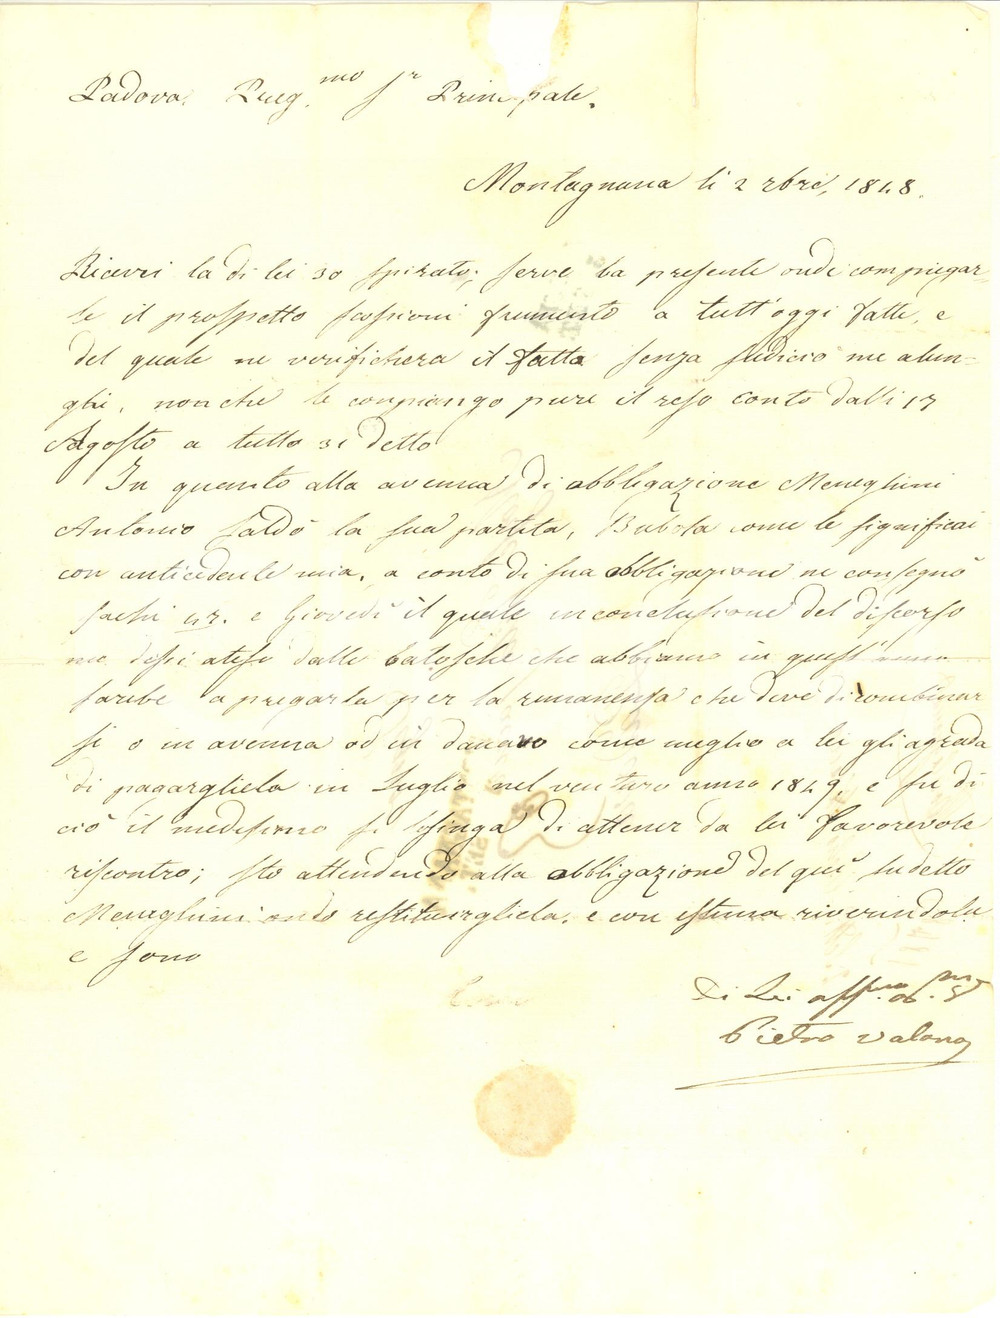 Padova. Preg.mo Sr Principale.
Montagnana li 2 7bre, 1848.
Ricevei la di lei 30 spirato; serve la presente onde compiegar-
le il prospetto scossioni frumento a tutt'oggi fatte, e
del quale ne verificherà il fatto senza sudicio me alun-
ghi, nonchè le compiango pure il reso conto dalli 17
Agosto a tutto 31 detto
In quanto alla avenna di obbligazione Meneghini
Antonio saldò la sua partita, Bubola come le significai
con antecedente mia, a conto di sua obbligazione ne consegnò
sachi e Giovedì il quale in conclusione del discorso
mo dissi ateso dalle catosche che abbiamo in quest'anno
sarebe a pregarla per la rimanensa che deve di combinar
si o in avenna od in danaro come meglio a lei gli agrada
di pagargliela in Luglio nel venturo anno 1849, e su di
ciò il medesimo si lusinga di attener da lei favorevole
riscontro; sto attendendo alla obbligazione del qui sudetto
Meneghini onde restituirgliela, e con estima riverindola
e sono
Di Lei aff.mo ob.mo S
Pietro Valona